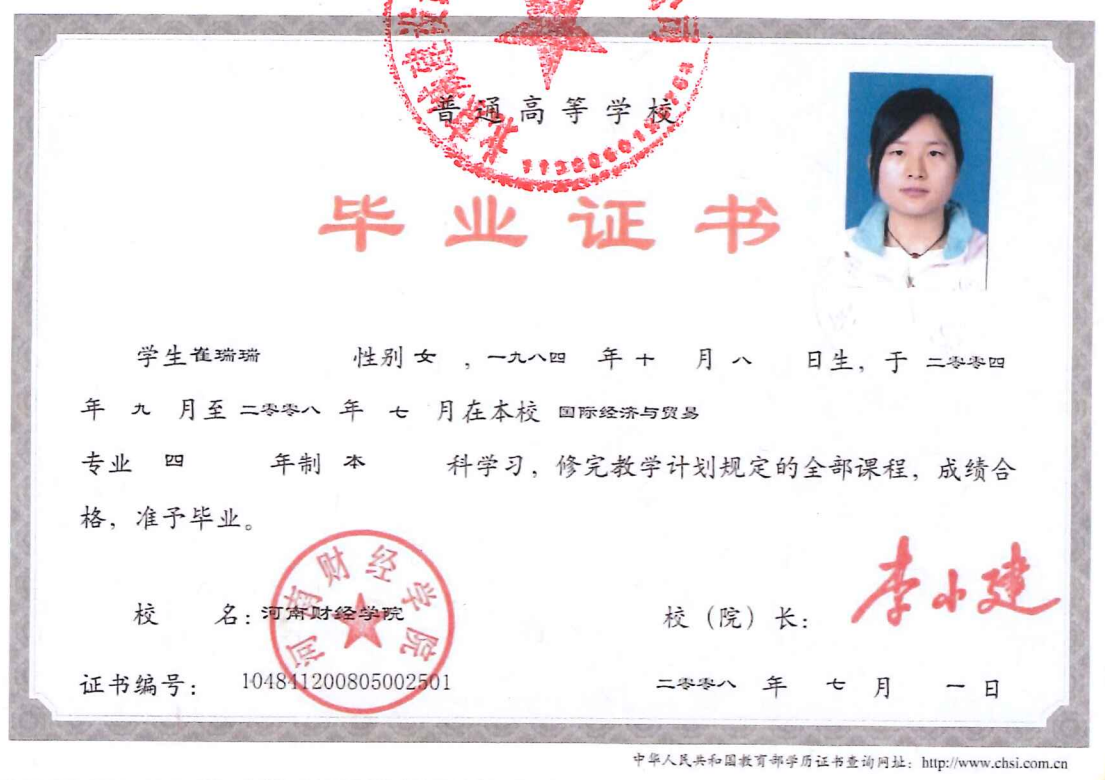 普通高等学校
毕业证书
学生崔瑞瑞 性别 女 ,一九八四 年 十 月 八 日生,于 二零零四
年 九 月至 二零零八 年 七 月在本校 国际经济与贸易
专业 四 年制 本 科学习,修完教学计划规定的全部课程,成绩合
格,准予毕业。
河南财经学院
校 名:河南财经学院
校(院)长:李小建
证书编号: 104841200805002501
二零零八 年 七 月 一 日
中华人民共和国教育部学历证书查询网址:http://www.chsi.com.cn